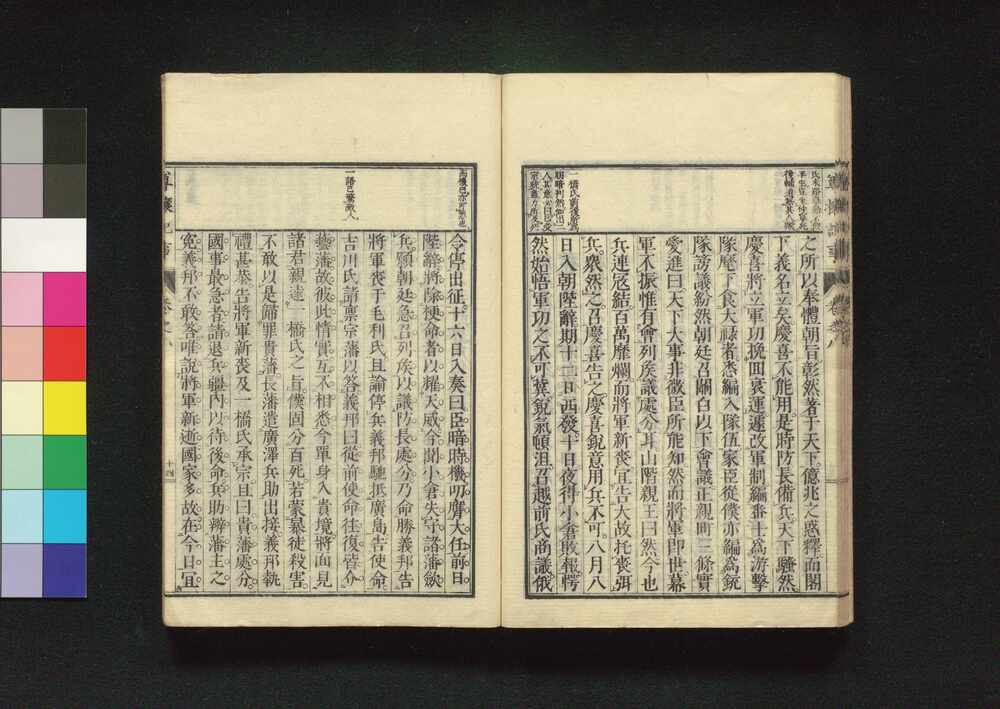 之所以奉體朝旨彰然著于天下億兆之惑釋而閣
下義名立矣慶喜不能用是時防長備兵天下騷然
慶喜將立軍功挽回衰運遽改軍制編番士爲游擊
隊麾下食大祿者悉編入隊伍家臣從僕亦編爲銃
隊謗議紛然朝廷召關白以下會議正親町三條實
愛進曰天下大事非微臣所能知然而將軍卽世幕
軍不振惟有會列矦議處分耳山階親王曰然今也
兵連寇結百萬靡爛而將軍新喪宜告大故托喪弭
兵衆然之召慶喜告之慶喜銳意用兵不可八月八
日入朝陛辭期十二日西發十日夜得小倉敗報愕
然始悟軍功之不可冀銳氣頓沮召越前氏商議俄
令停出征十六日入奏曰臣暗時機叨膺大任前日
陛辭將除梗命者以耀天威今聞小倉失守諸藩斂
兵願朝廷急召列矦以議防長處分乃命勝義邦告
將軍喪于毛利氏且諭停兵義邦馳抵廣島告使命
吉川氏請稟宗藩以答義邦曰從前使命往復皆介
藝藩故彼此情實互不相悉今單身入貴境將面見
諸君親達一橋氏之旨僕固分百死若蒙暴徒殺害
不敢以是歸罪貴藩長藩遣廣澤兵助出接義邦執
禮甚恭告將軍新喪及一橋氏承宗且曰貴藩處分
國事最急者請退兵疆內以待後命兵助辨藩主之
冤義邦不敢答唯說將軍新逝國家多故在今日宜
一語已驚敵人
尊攘紀事
卷之八
十四